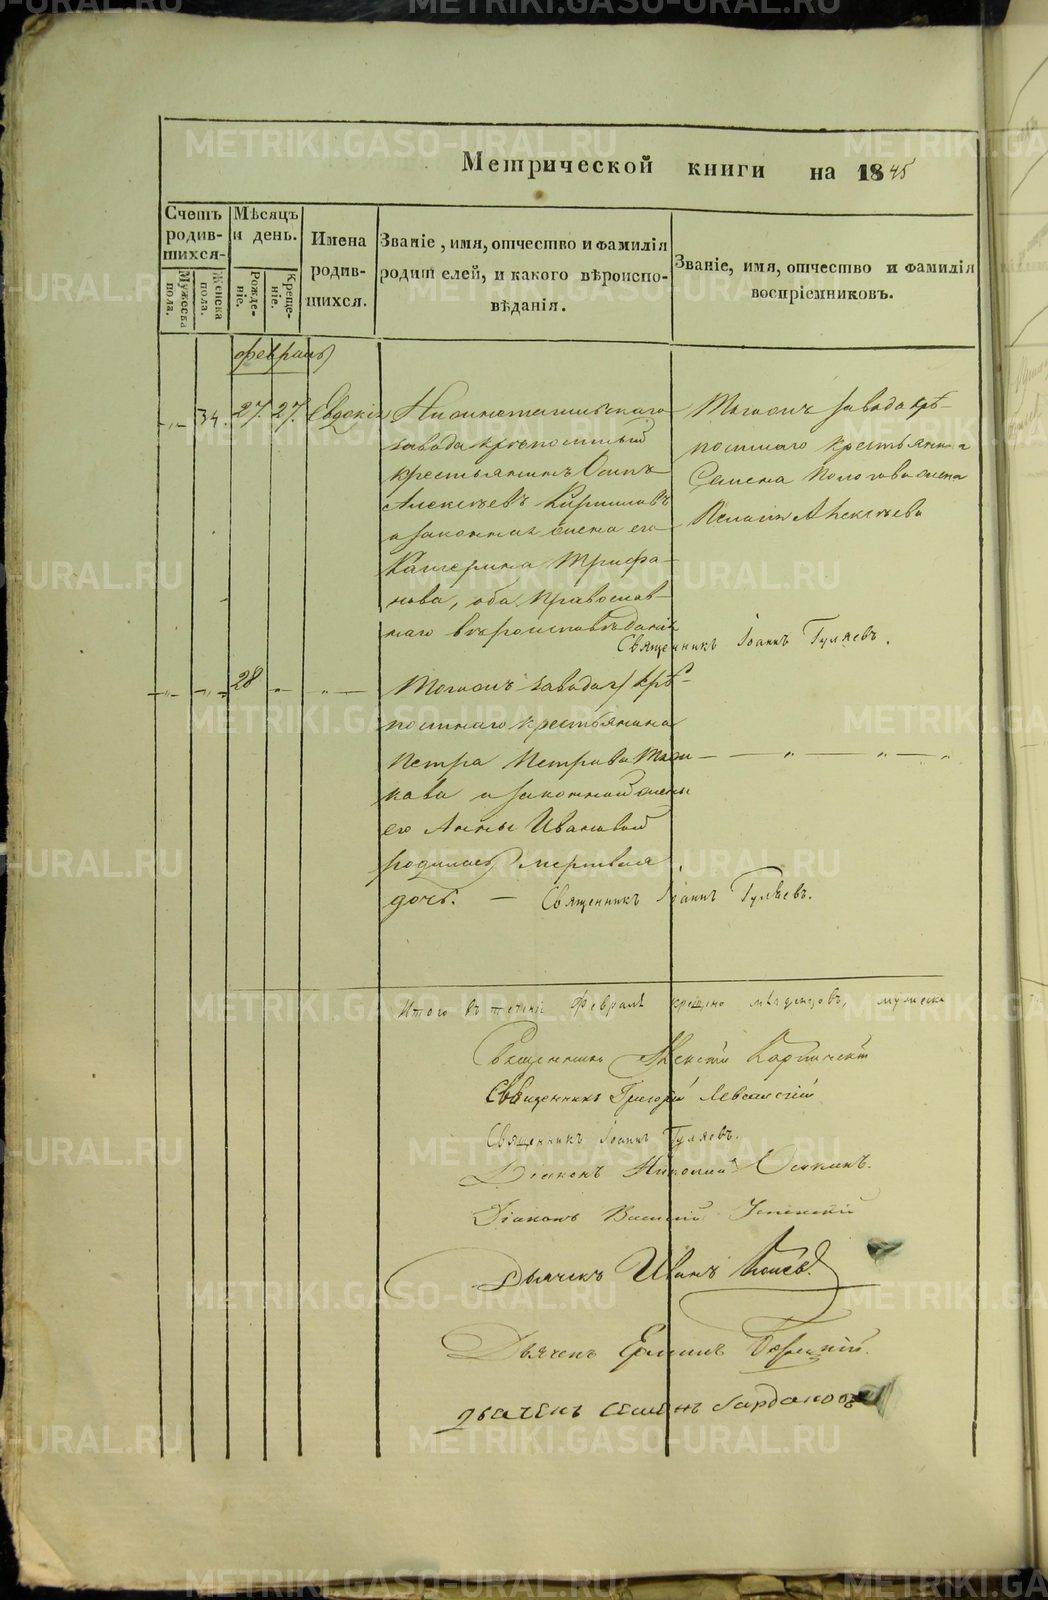 METRIKI.GASO-URAL.RU
Метрической книги на 1845
Счетъ родив-шихся.
Мужеска пола.
Женска пола.
Мѣсяцъ и день.
Рожде-ніе.
Креще-ніе.
Имена родив-шихся.
Званіе, имя, отчество и фамилія родителей, и какого вѣроиспо-вѣданія.
Званіе, имя, отчество и фамилія воспріемниковъ.
февраль
34. 27. 27. Евдокія
Нижнетагильскаго
завода крѣпостный
крестьянинъ Осипъ
Алексѣевъ Кирилловъ
и законная жена его
Катерина Трифо-
нова, оба Православ-
наго вѣроисповѣданія
Тогожъ завода крѣ-
постнаго крестьянина
Семена жена
Пелагія Алексѣева
Священникъ Іоаннъ Гуляевъ.
28
Тогожъ завода крѣ-
постнаго крестьянина
Петра Петрова
и законной жены
его Анны Ивановой
родилась мертвая
дочь. — Священникъ Іоаннъ Гуляевъ.
Итого въ февралѣ крещено младенцовъ, мужеска
Священникъ Алексѣй
Священникъ Григорій Левсатскій
Священникъ Іоаннъ Гуляевъ.
Діаконъ Николай
Діаконъ Василій Успенскій
Дьячекъ Иванъ
Дьячекъ
дьячекъ Семенъ